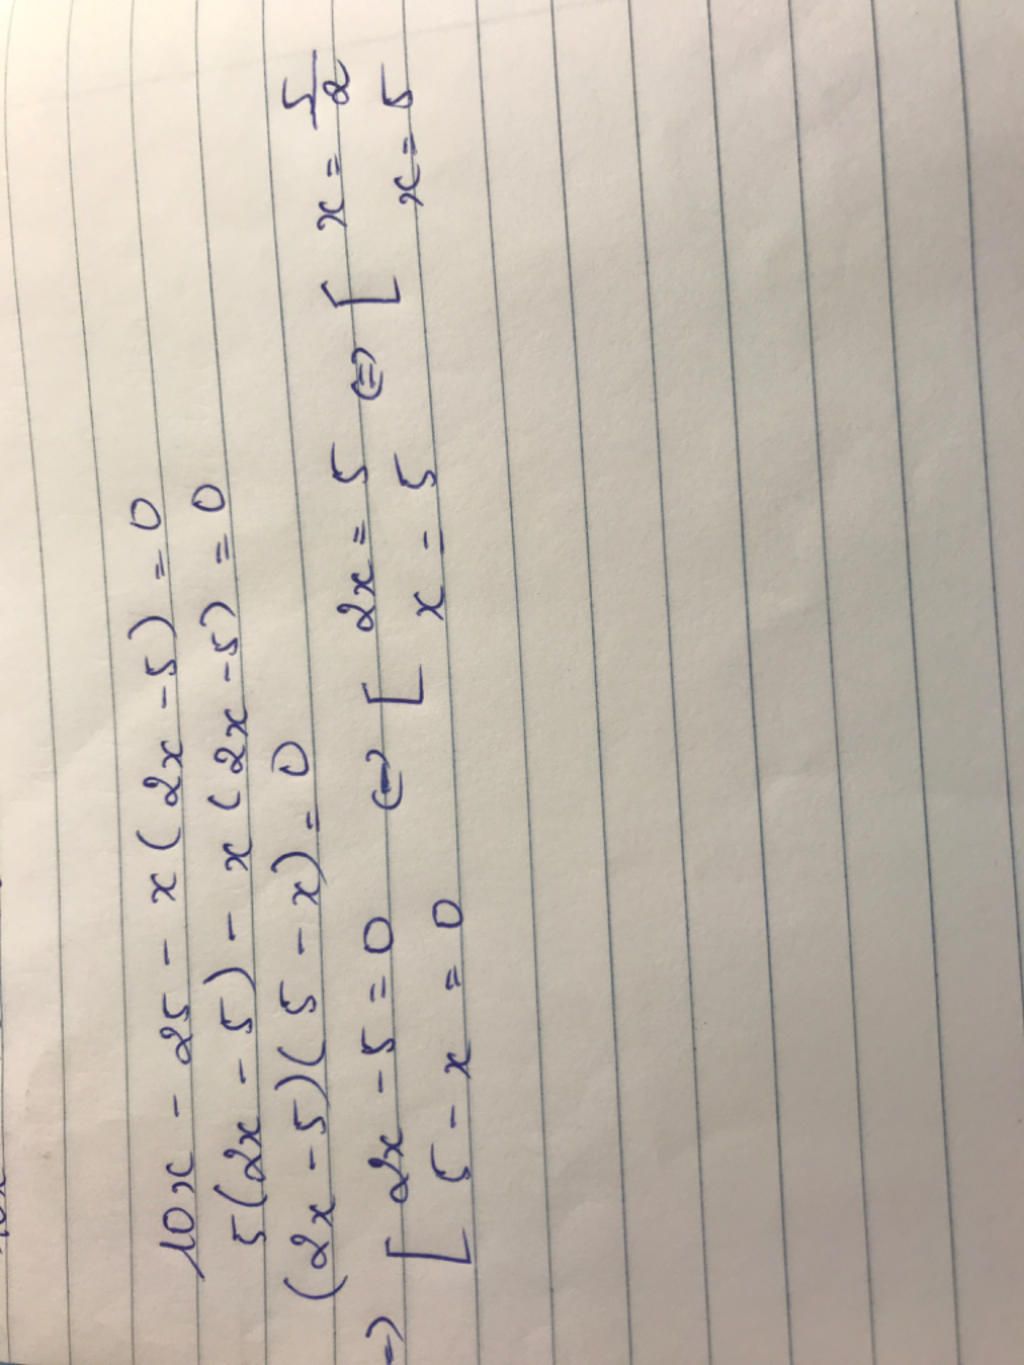 10x - 25 - x(2x - 5) = 0
5(2x - 5) - x(2x - 5) = 0
(2x - 5)(5 - x) = 0
=> [ 2x - 5 = 0 <=> [ 2x = 5 <=> [ x = 5/2
5 - x = 0 x = 5 x = 5